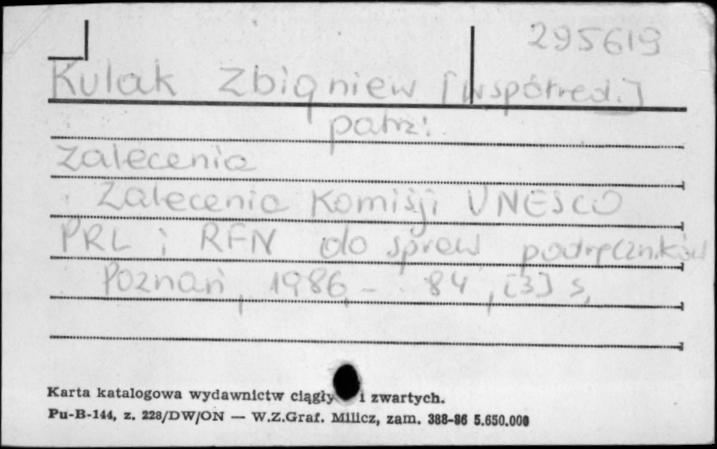 295619
Kulak Zbigniew [współred.]
patrz:
Zalecenia
Zalecenia Komisji UNESCO
PRL i RFN do spraw podręczników
Poznań, 1986, - 84, [3] s,
Karta katalogowa wydawnictw ciągły i zwartych.
Pu-B-144, z. 228/DW/ON — W.Z.Graf. Milicz, zam. 388-86 5.650.000